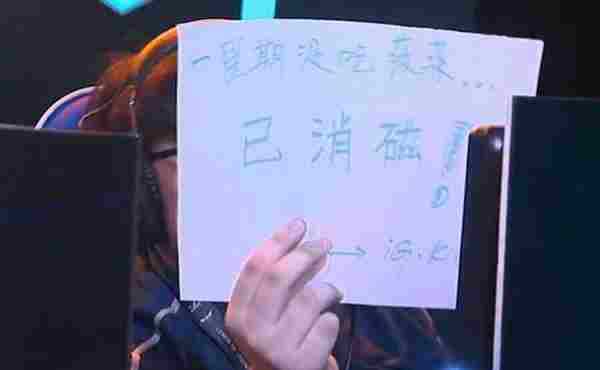 一星期没吃菠菜...
已消磁！
→